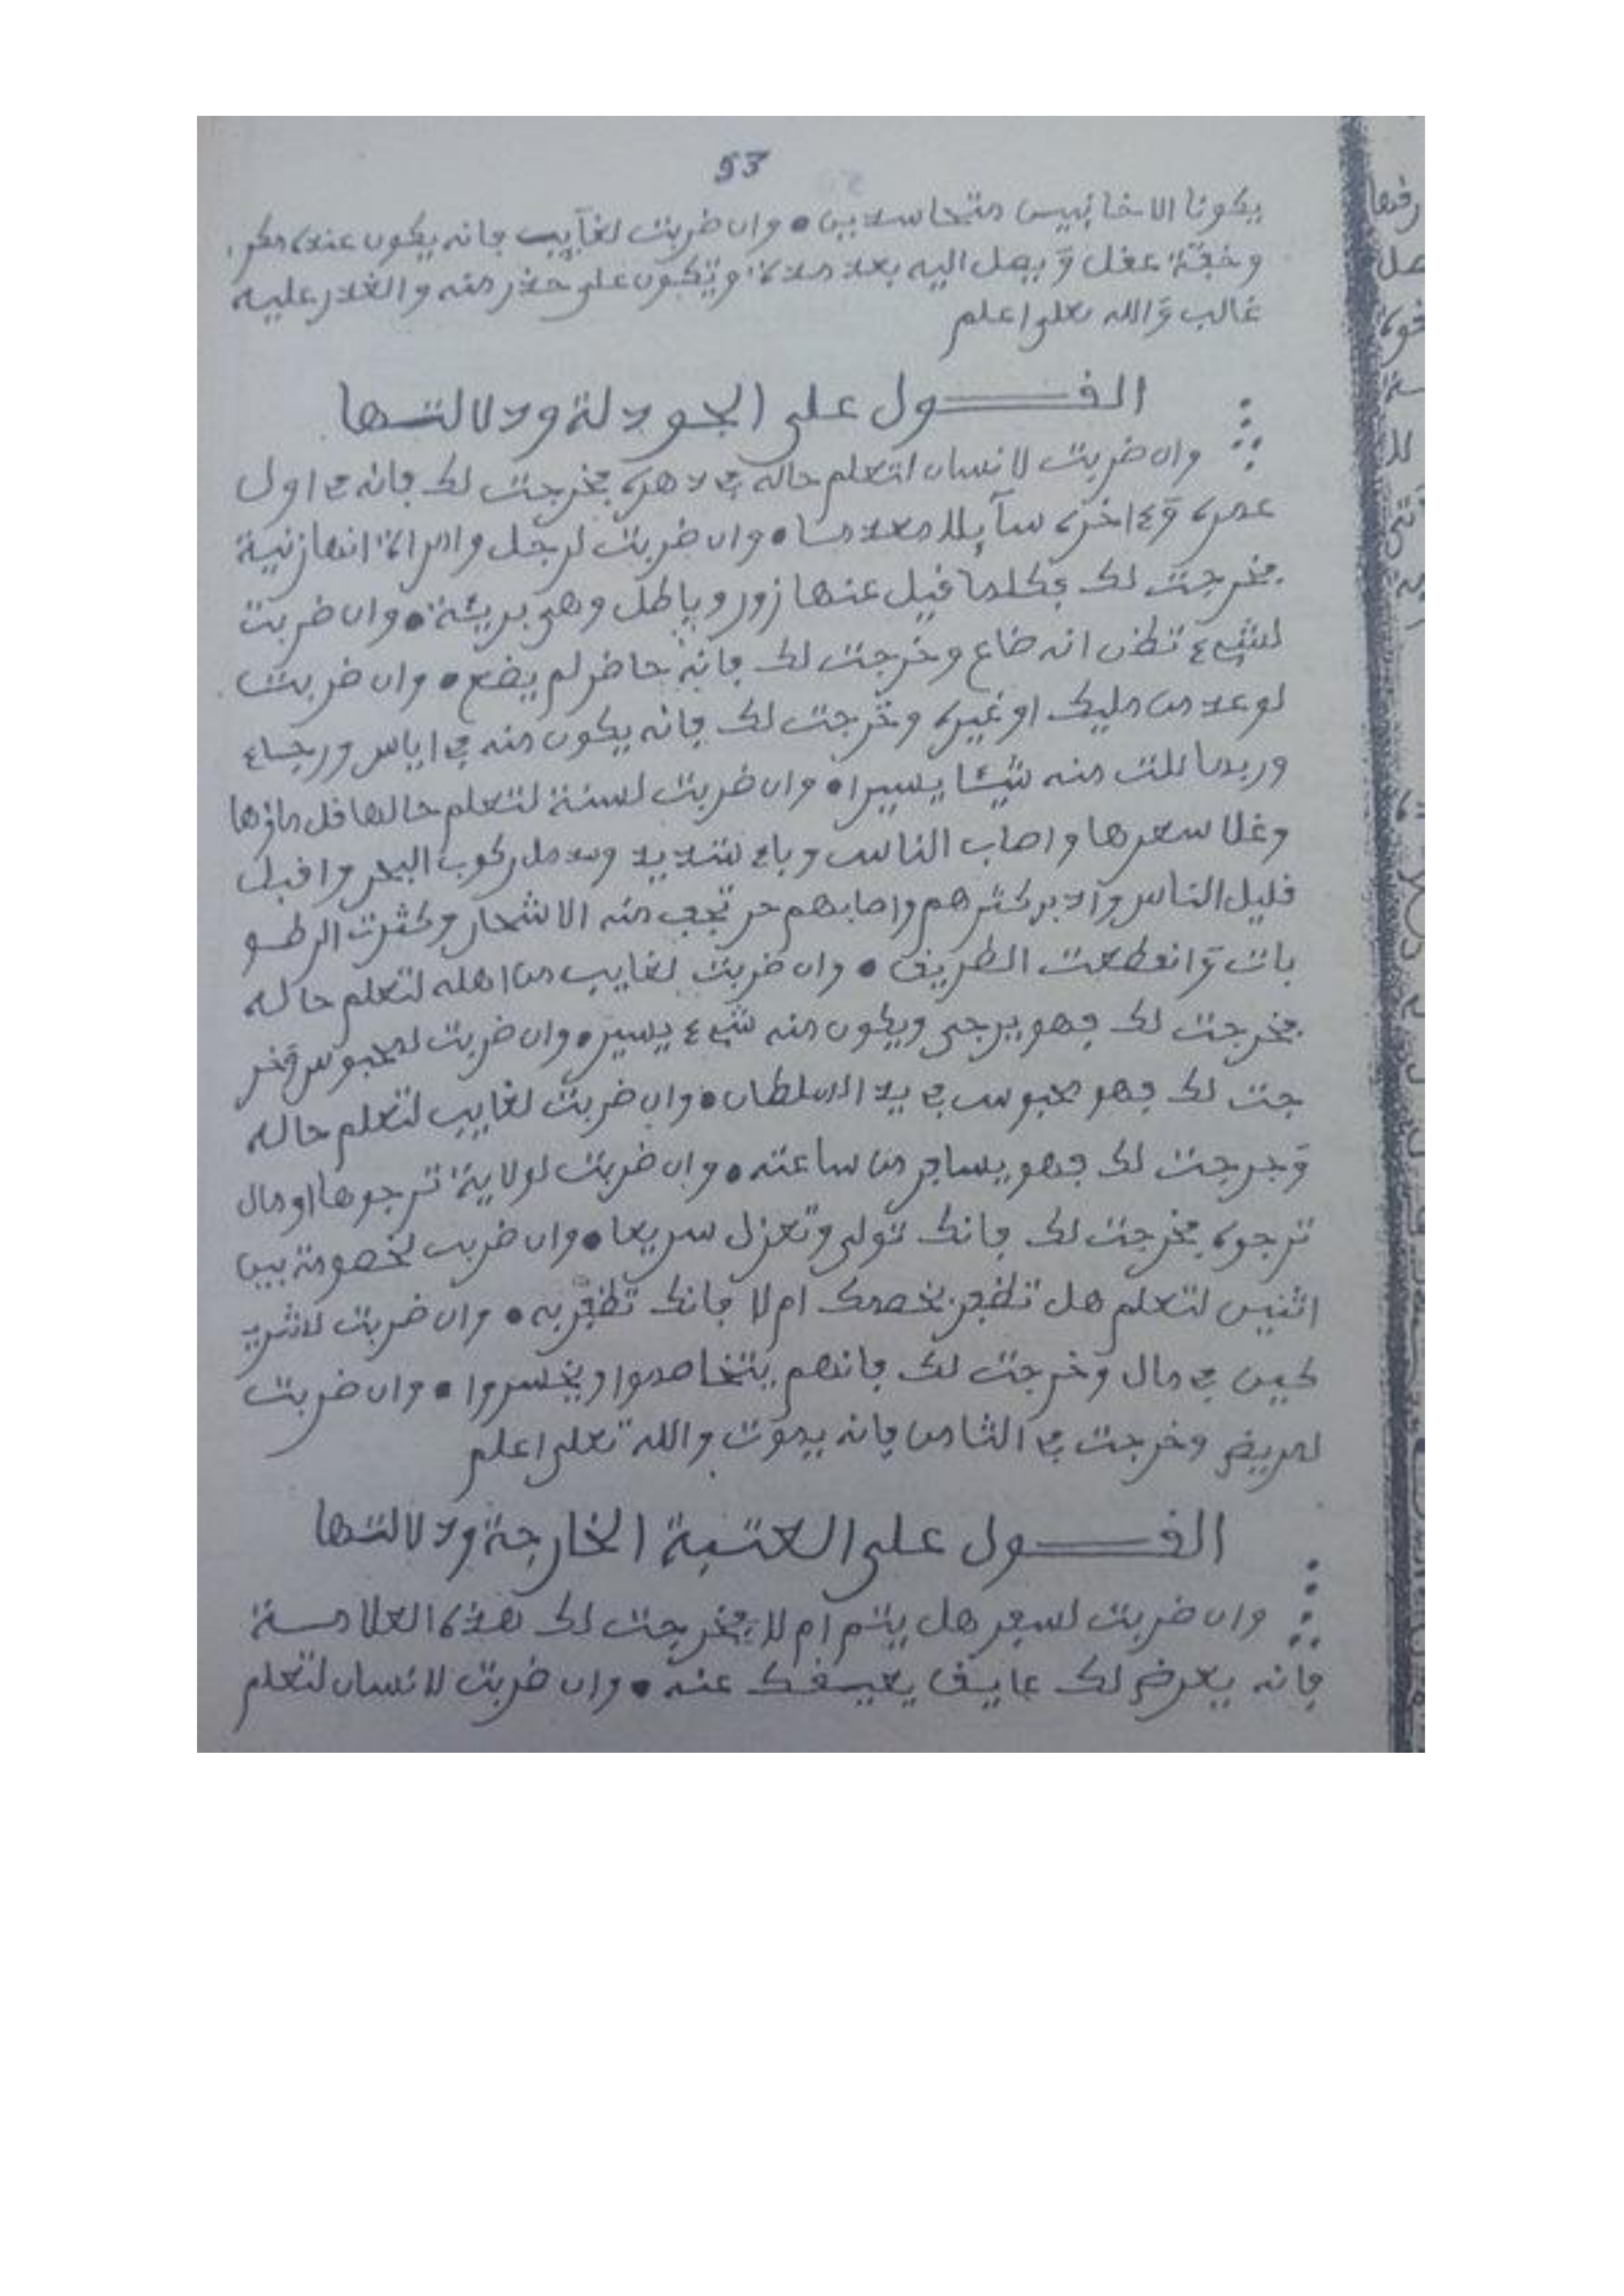 53
يكونا الا خاينين متحاسدين • وان ضربت لغآيب فانه يكون عنده مكر
وخفة عقل ويصل اليه بعد مدة وتكون على حذر منه والغدر عليه
غالب والله تعلى اعلم
القول على الجودلة ودلالتها
وان ضربت لانسان لتعلم حاله في دهره فخرجت لك فانه في اول
عمره وفي اخره سآيلا معدما • وان ضربت لرجل وامراة انها زنية
فخرجت لك فكلما قيل عنها زور وباطل وهي بريئة • وان ضربت
لشيء تظن انه ضاع وخرجت لك فانه حاضر لم يضع • وان ضربت
لوعد من مليك او غيره وخرجت لك فانه يكون منه في اياس ورجاء
وربما نلت منه شيئا يسيرا • وان ضربت لسنة لتعلم حالها قل ماؤها
وغلا سعرها واصاب الناس وباء شديد وبطل ركوب البحر واقبل
قليل الناس وادبر كثرهم واصابهم حر تجف منه الاشجار وكثرت الرطو
بات وانقطعت الطريق • وان ضربت لغايب من اهله لتعلم حاله
فخرجت لك فهو يرجى ويكون منه شيء يسير • وان ضربت لمحبوس وخر
جت لك فهو محبوس في يد السلطان • وان ضربت لغايب لتعلم حاله
وخرجت لك فهو يسافر من ساعته • وان ضربت لولاية ترجوها او مال
ترجوه فخرجت لك فانك تولى وتعزل سريعا • وان ضربت لخصومة بين
اثنين لتعلم هل تظفر بخصمك ام لا فانك تظفر به • وان ضربت لشر
كين في مال وخرجت لك فانهم يتخاصموا ويخسروا • وان ضربت
لمريض وخرجت في الثامن فانه يموت والله تعلى اعلم
القول على العتبة الخارجة ودلالتها
وان ضربت لسفر هل يتم ام لا فخرجت لك هذه العلامة
فانه يعرض لك عايق يعيقك عنه • وان ضربت لانسان لتعلم